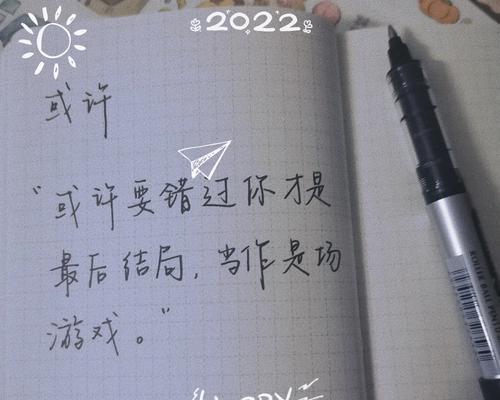 2022
或许
“或许要错过你才是
最后结局，当作是场
游戏。”